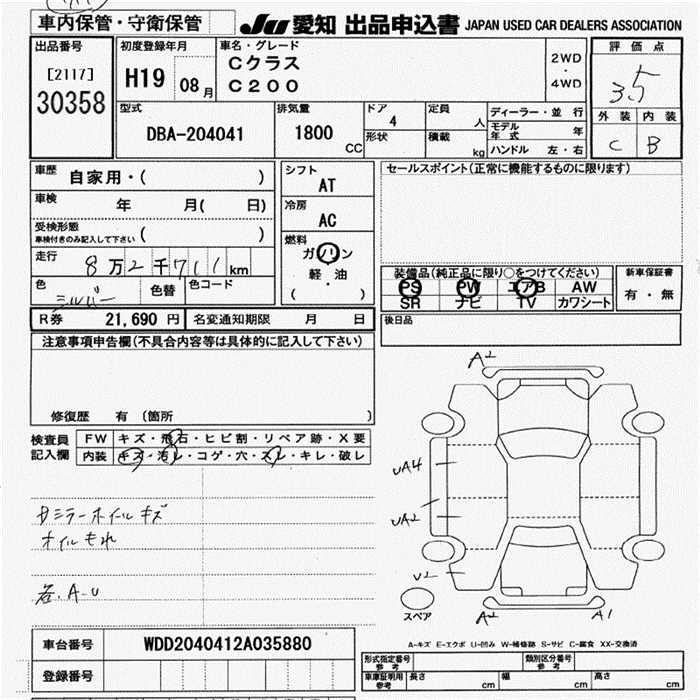 車内保管・守衛保管
JU 愛知 出品申込書 JAPAN USED CAR DEALERS ASSOCIATION
出品番号
[2117]
30358
初度登録年月
H19 08月
車名・グレード
Cクラス
C200
2WD
・
4WD
評価点
3.5
外装 内装
C B
型式
DBA-204041
排気量
1800 CC
ドア
4
形状
定員
人
積載
kg
ディーラー・並行
モデル年式 年
ハンドル 左・右
車歴 自家用・( )
車検 年 月( 日)
受検形態
車検付きのみ記入して下さい ( )
走行 8万2千711km
色 シルバー 色替 色コード
シフト
AT
冷房
AC
燃料
ガソリン
軽・油
( )
セールスポイント(正常に機能するものに限ります)
装備品(純正品に限り○をつけてください)
PS PW エアB AW
SR ナビ TV カワシート
新車保証書
有・無
R券 21,690円 名変通知期限 月 日
後日品
注意事項申告欄(不具合内容等は具体的に記入して下さい)
修復歴 有 (箇所 )
検査員
記入欄
FW キズ・飛石・ヒビ割・リペア跡・X要
内装 キズ・汚レ・コゲ・穴・スレ・キレ・破レ
サミラーホイルキズ
オイルもれ
各.A-U
A2
UA4
UA2
U2
スペア
A2
A1
A-キズ E-エクボ U-凹み W-補修跡 S-サビ C-腐食 XX-交換済
車台番号 WDD2040412A035880
登録番号
形式指定番号
参考
類別区分番号
参考
車庫証明用
参考
長さ cm 幅 cm 高さ cm